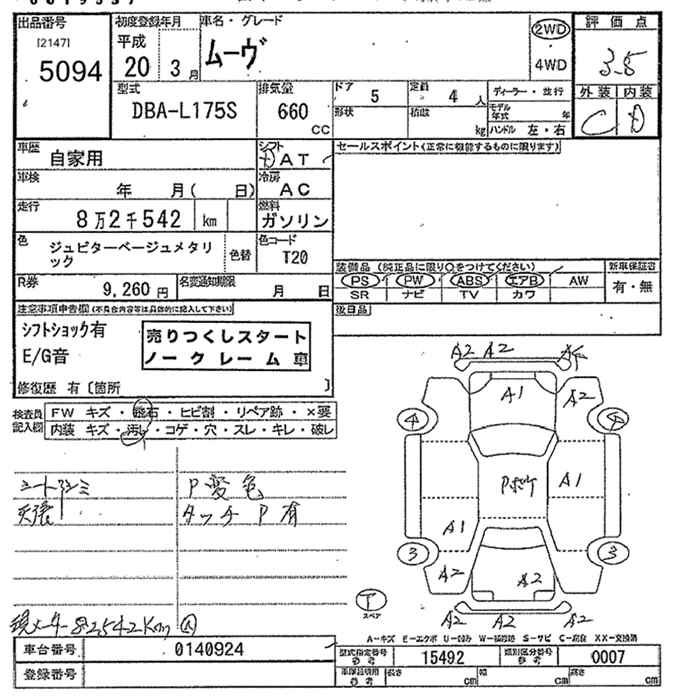 出品番号 初度登録年月 車名・グレード 2WD 評価点
[2147] 平成 ムーヴ 3.5
5094 20年 3月 4WD 外装 内装
C D
型式 排気量 ドア 5 定員 4人 ディーラー・並行
DBA-L175S 660 CC 形状 積載 kg モデル年式 年
ハンドル 左・右
車歴 自家用 シフト AT セールスポイント(正常に機能するものに限ります)
車検 年 月( 日) 冷房 AC
走行 8万2千542 km 燃料 ガソリン
色 ジュピターベージュメタリック 色替 色コード T20
装備品(純正品に限り○をつけてください) 新車保証書
PS PW ABS エアB AW 有・無
SR ナビ TV カワ
R券 9,260円 名変通知期限 月 日
後日品
注意事項申告欄(不具合内容等は具体的に記入して下さい)
シフトショック有
E/G音
売りつくしスタート
ノークレーム車
修復歴 有〔箇所 〕
検査員記入欄 FW キズ・飛石・ヒビ割・リペア跡・×要
内装 キズ・汚れ・コゲ・穴・スレ・キレ・破レ
P変色
タッチP有
A2 A2
A1 A2
4 4
A1
A1
3 3
A2 A2
A2 A2 A2
T
スペア
現メーター82542Km
A-キズ E-エクボ U-凹み W-補修跡 S-サビ C-腐食 XX-交換済
車台番号 0140924 型式指定番号 参考 15492 類別区分番号 参考 0007
登録番号 車庫証明用 参考 長さ cm 幅 cm 高さ cm